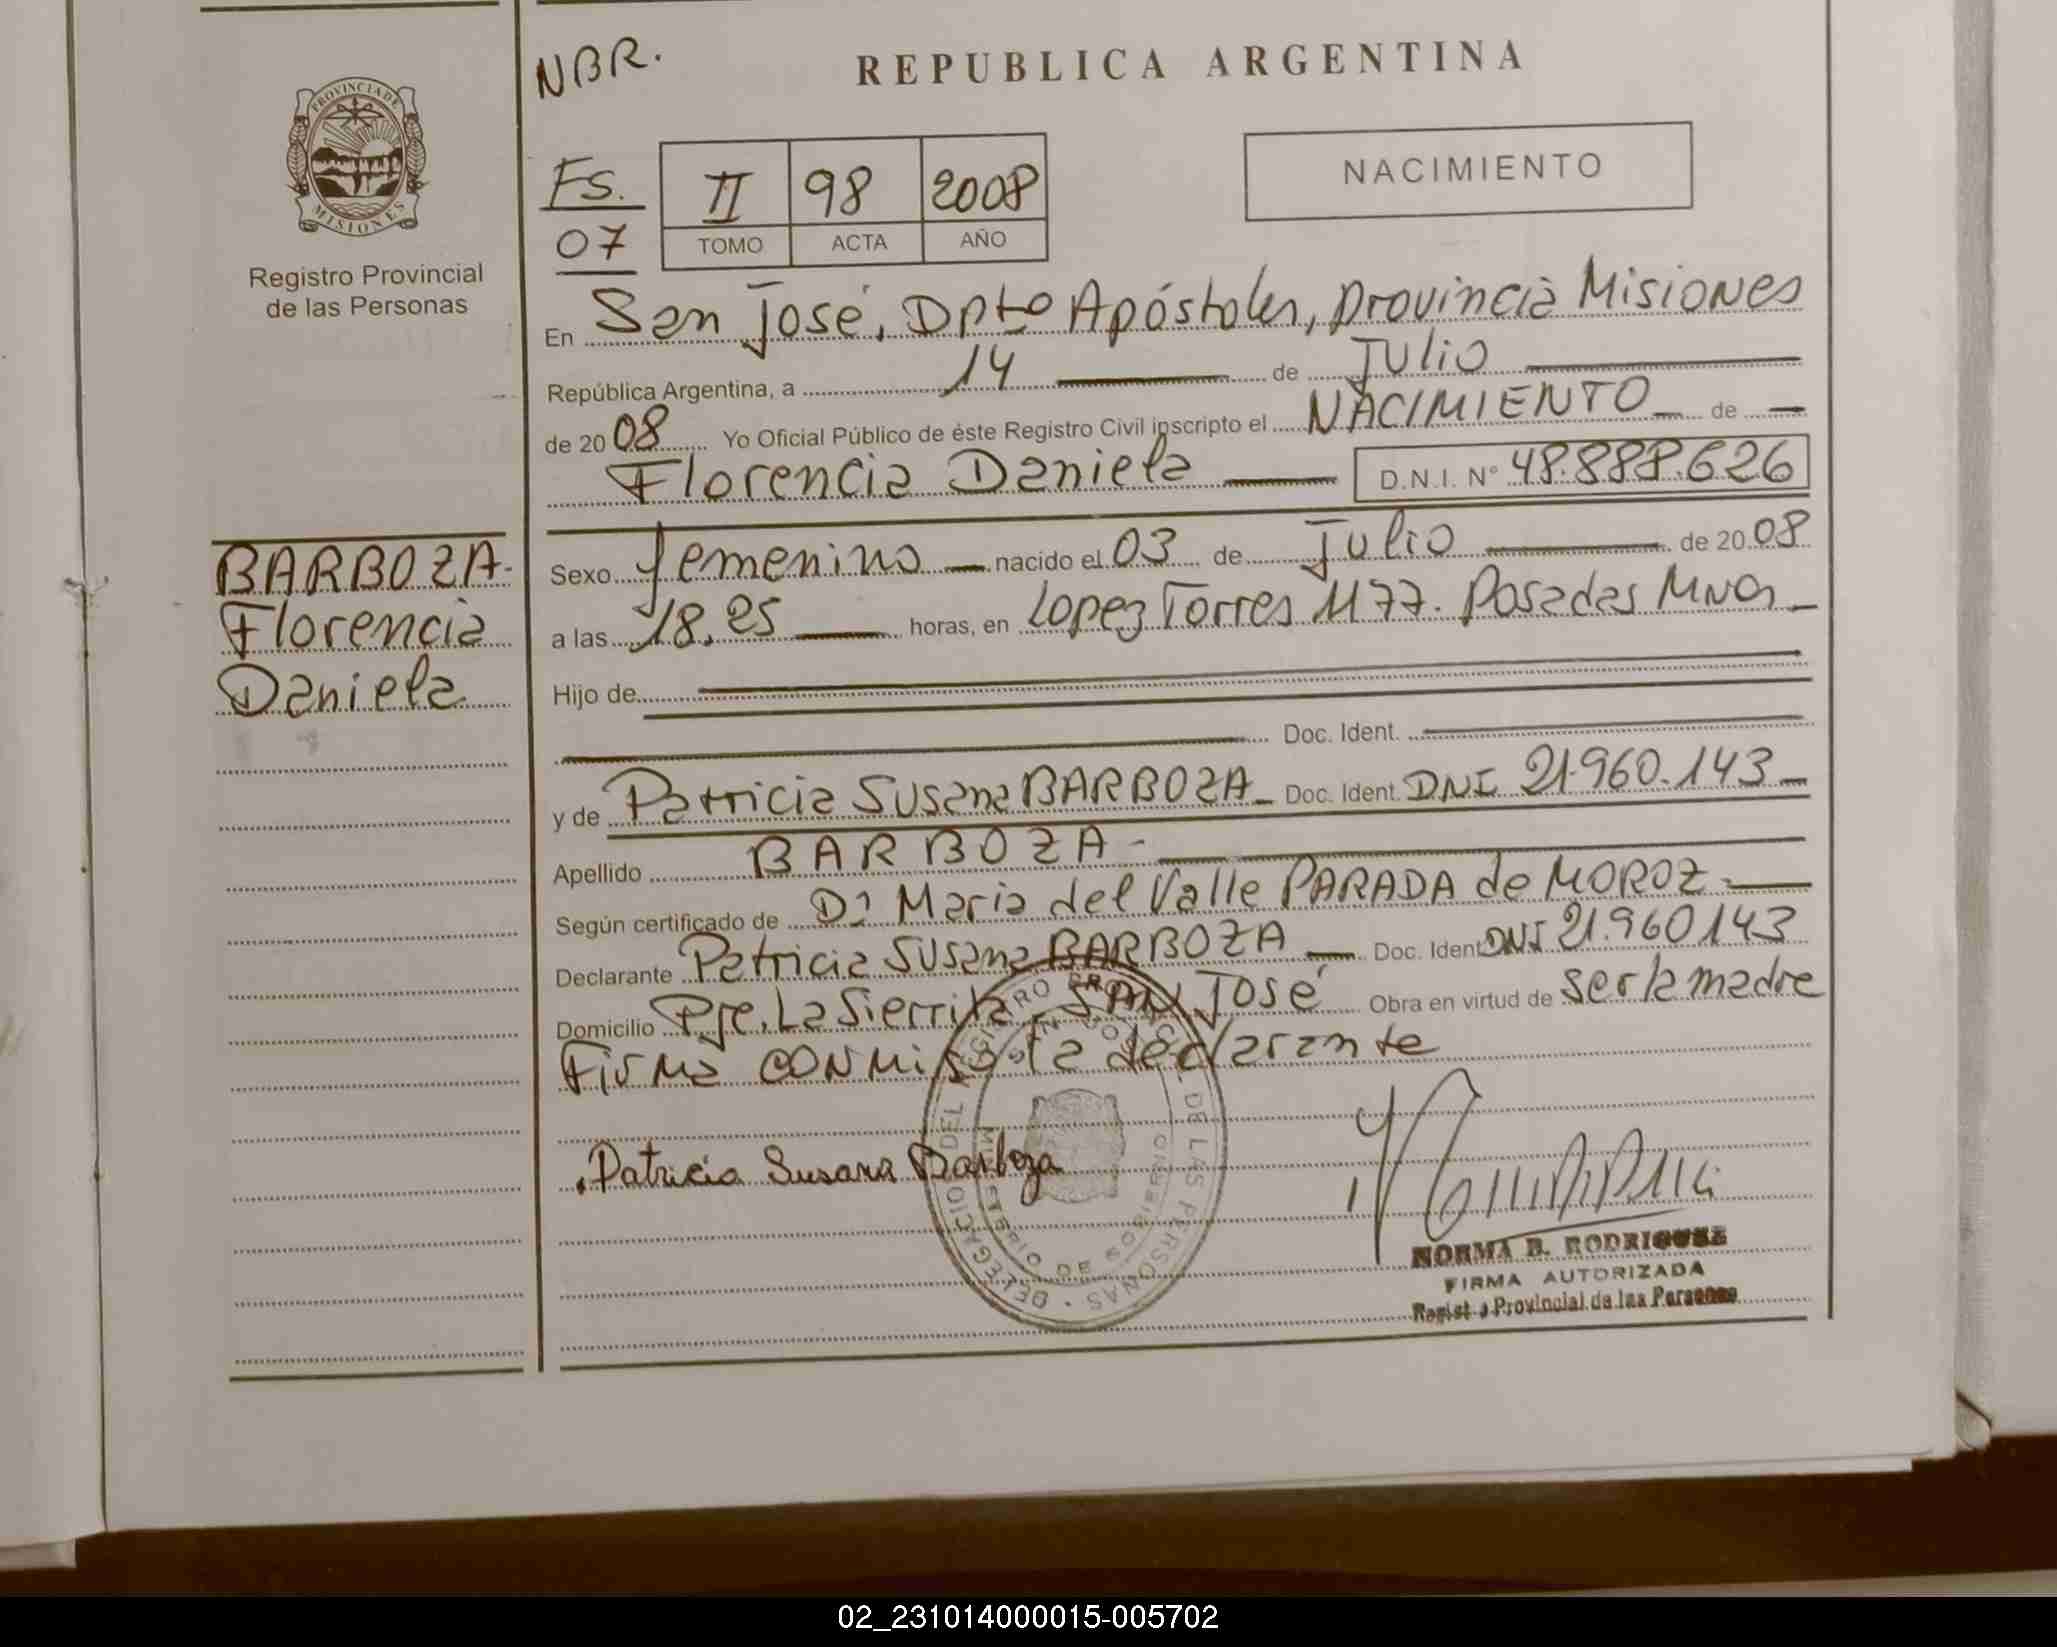 NBR.
REPUBLICA ARGENTINA
PROVINCIA DE
MISIONES
Registro Provincial
de las Personas
NACIMIENTO
Fs.
07
II 98 2008
TOMO ACTA AÑO
En San José, Dpto Apóstoles, provincia Misiones
República Argentina, a 14 de Julio
de 2008 Yo Oficial Público de éste Registro Civil inscripto el NACIMIENTO de
Florencia Daniela D.N.I. Nº 48.888.626
BARBOZA
Florencia
Daniela
Sexo femenino nacido el 03 de Julio de 2008
a las 18,25 horas, en Lopez Torres 1177. Posadas Mnes
Hijo de
Doc. Ident.
y de Patricia Susana BARBOZA Doc. Ident. DNI 21.960.143
Apellido BARBOZA
Según certificado de Dª Maria del Valle PARADA de MOROZ
Declarante Patricia Susana BARBOZA Doc. Ident DNI 21.960143
Domicilio Pje. La Sierrita SAN JOSÉ Obra en virtud de ser la madre
Firma conmigo la declarante
Patricia Susana Barboza
DELEGACIO DEL REGISTRO PROVINCIAL DE LAS PERSONAS
MINISTERIO DE GOBIERNO
NORMA B. RODRIGUEZ
FIRMA AUTORIZADA
Regist o Provincial de las Personas
02_231014000015-005702